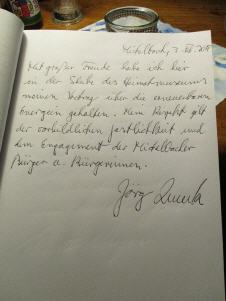 Mittelbach, 3. XII. 2011
Mit großer Freude habe ich hier
in der Stube des Heimatmuseums
meinen Vortrag über die erneuerbaren
Energien gehalten. Mein Respekt gilt
der vorbildlichen Festlichkeit und
dem Engagement der Mittelbacher
Bürger u. Bürgerinnen.
Jörg